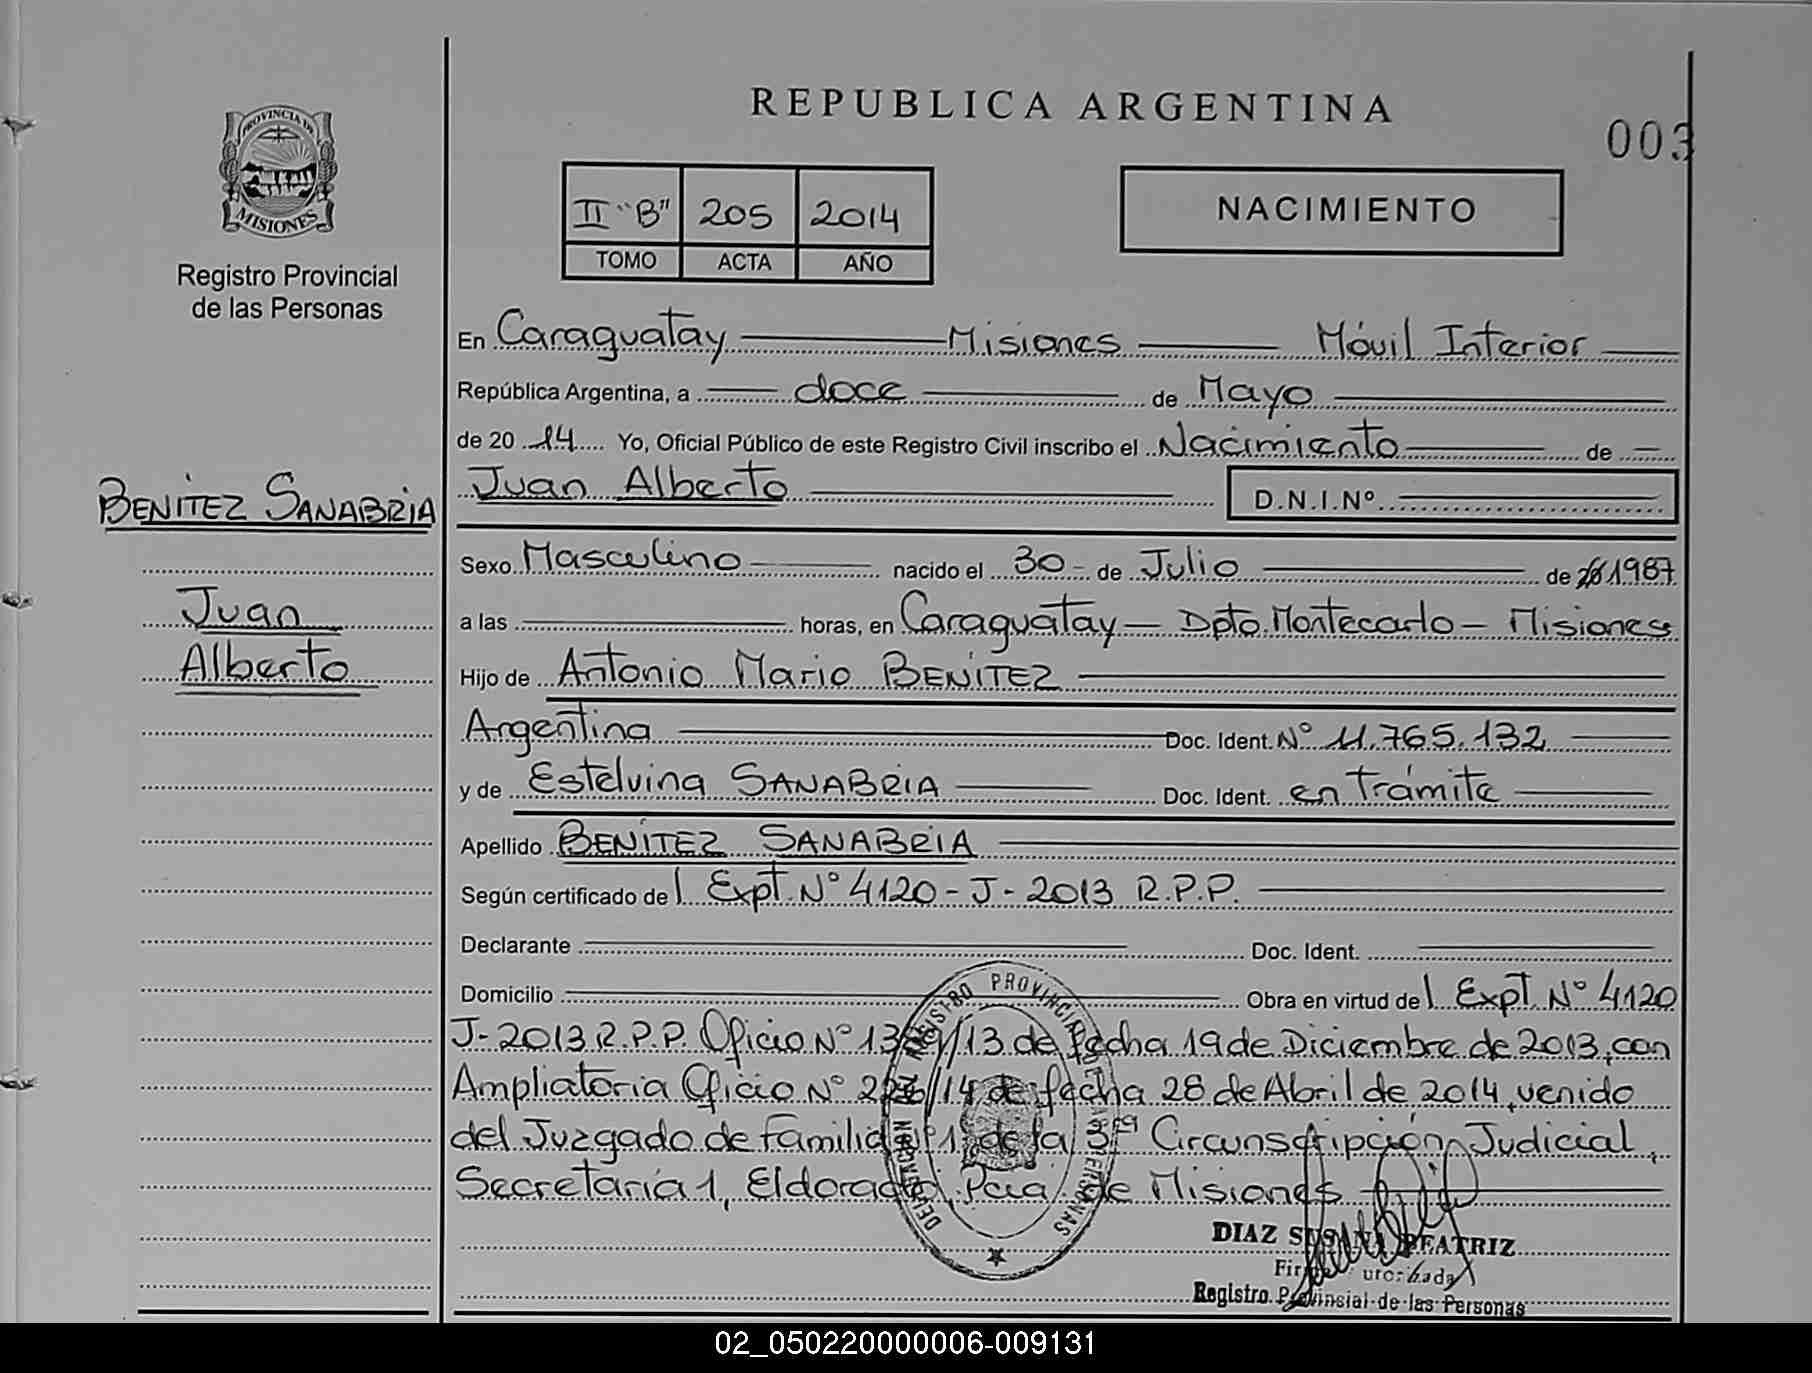 REPUBLICA ARGENTINA
003
PROVINCIA DE
MISIONES
Registro Provincial
de las Personas
II "B" 205 2014
TOMO ACTA AÑO
NACIMIENTO
En Caraguatay Misiones Móvil Interior
República Argentina, a doce de Mayo
de 2014 Yo, Oficial Público de este Registro Civil inscribo el Nacimiento de
Juan Alberto D.N.I.Nº
BENITEZ SANABRIA
Juan
Alberto
Sexo Masculino nacido el 30 de Julio de 1987
a las horas, en Caraguatay - Dpto. Montecarlo - Misiones
Hijo de Antonio Mario BENITEZ
Argentina Doc. Ident. Nº 11.765.132
y de Estelvina SANABRIA Doc. Ident. en Trámite
Apellido BENITEZ SANABRIA
Según certificado de Expt. Nº 4120 - J - 2013 R.P.P.
Declarante Doc. Ident.
Domicilio Obra en virtud de Expt. Nº 4120
J-2013 R.P.P. Oficio Nº /13 de fecha 19 de Diciembre de 2013, con
Ampliatoria Oficio Nº /14 de fecha 28 de Abril de 2014, venido
del Juzgado de Familia Nº1 de la 3ra Circunscripción Judicial,
Secretaría 1, Eldorado, Pcia de Misiones
DIAZ SUSANA BEATRIZ
Registro Provinsial de las Personas
02_050220000006-009131